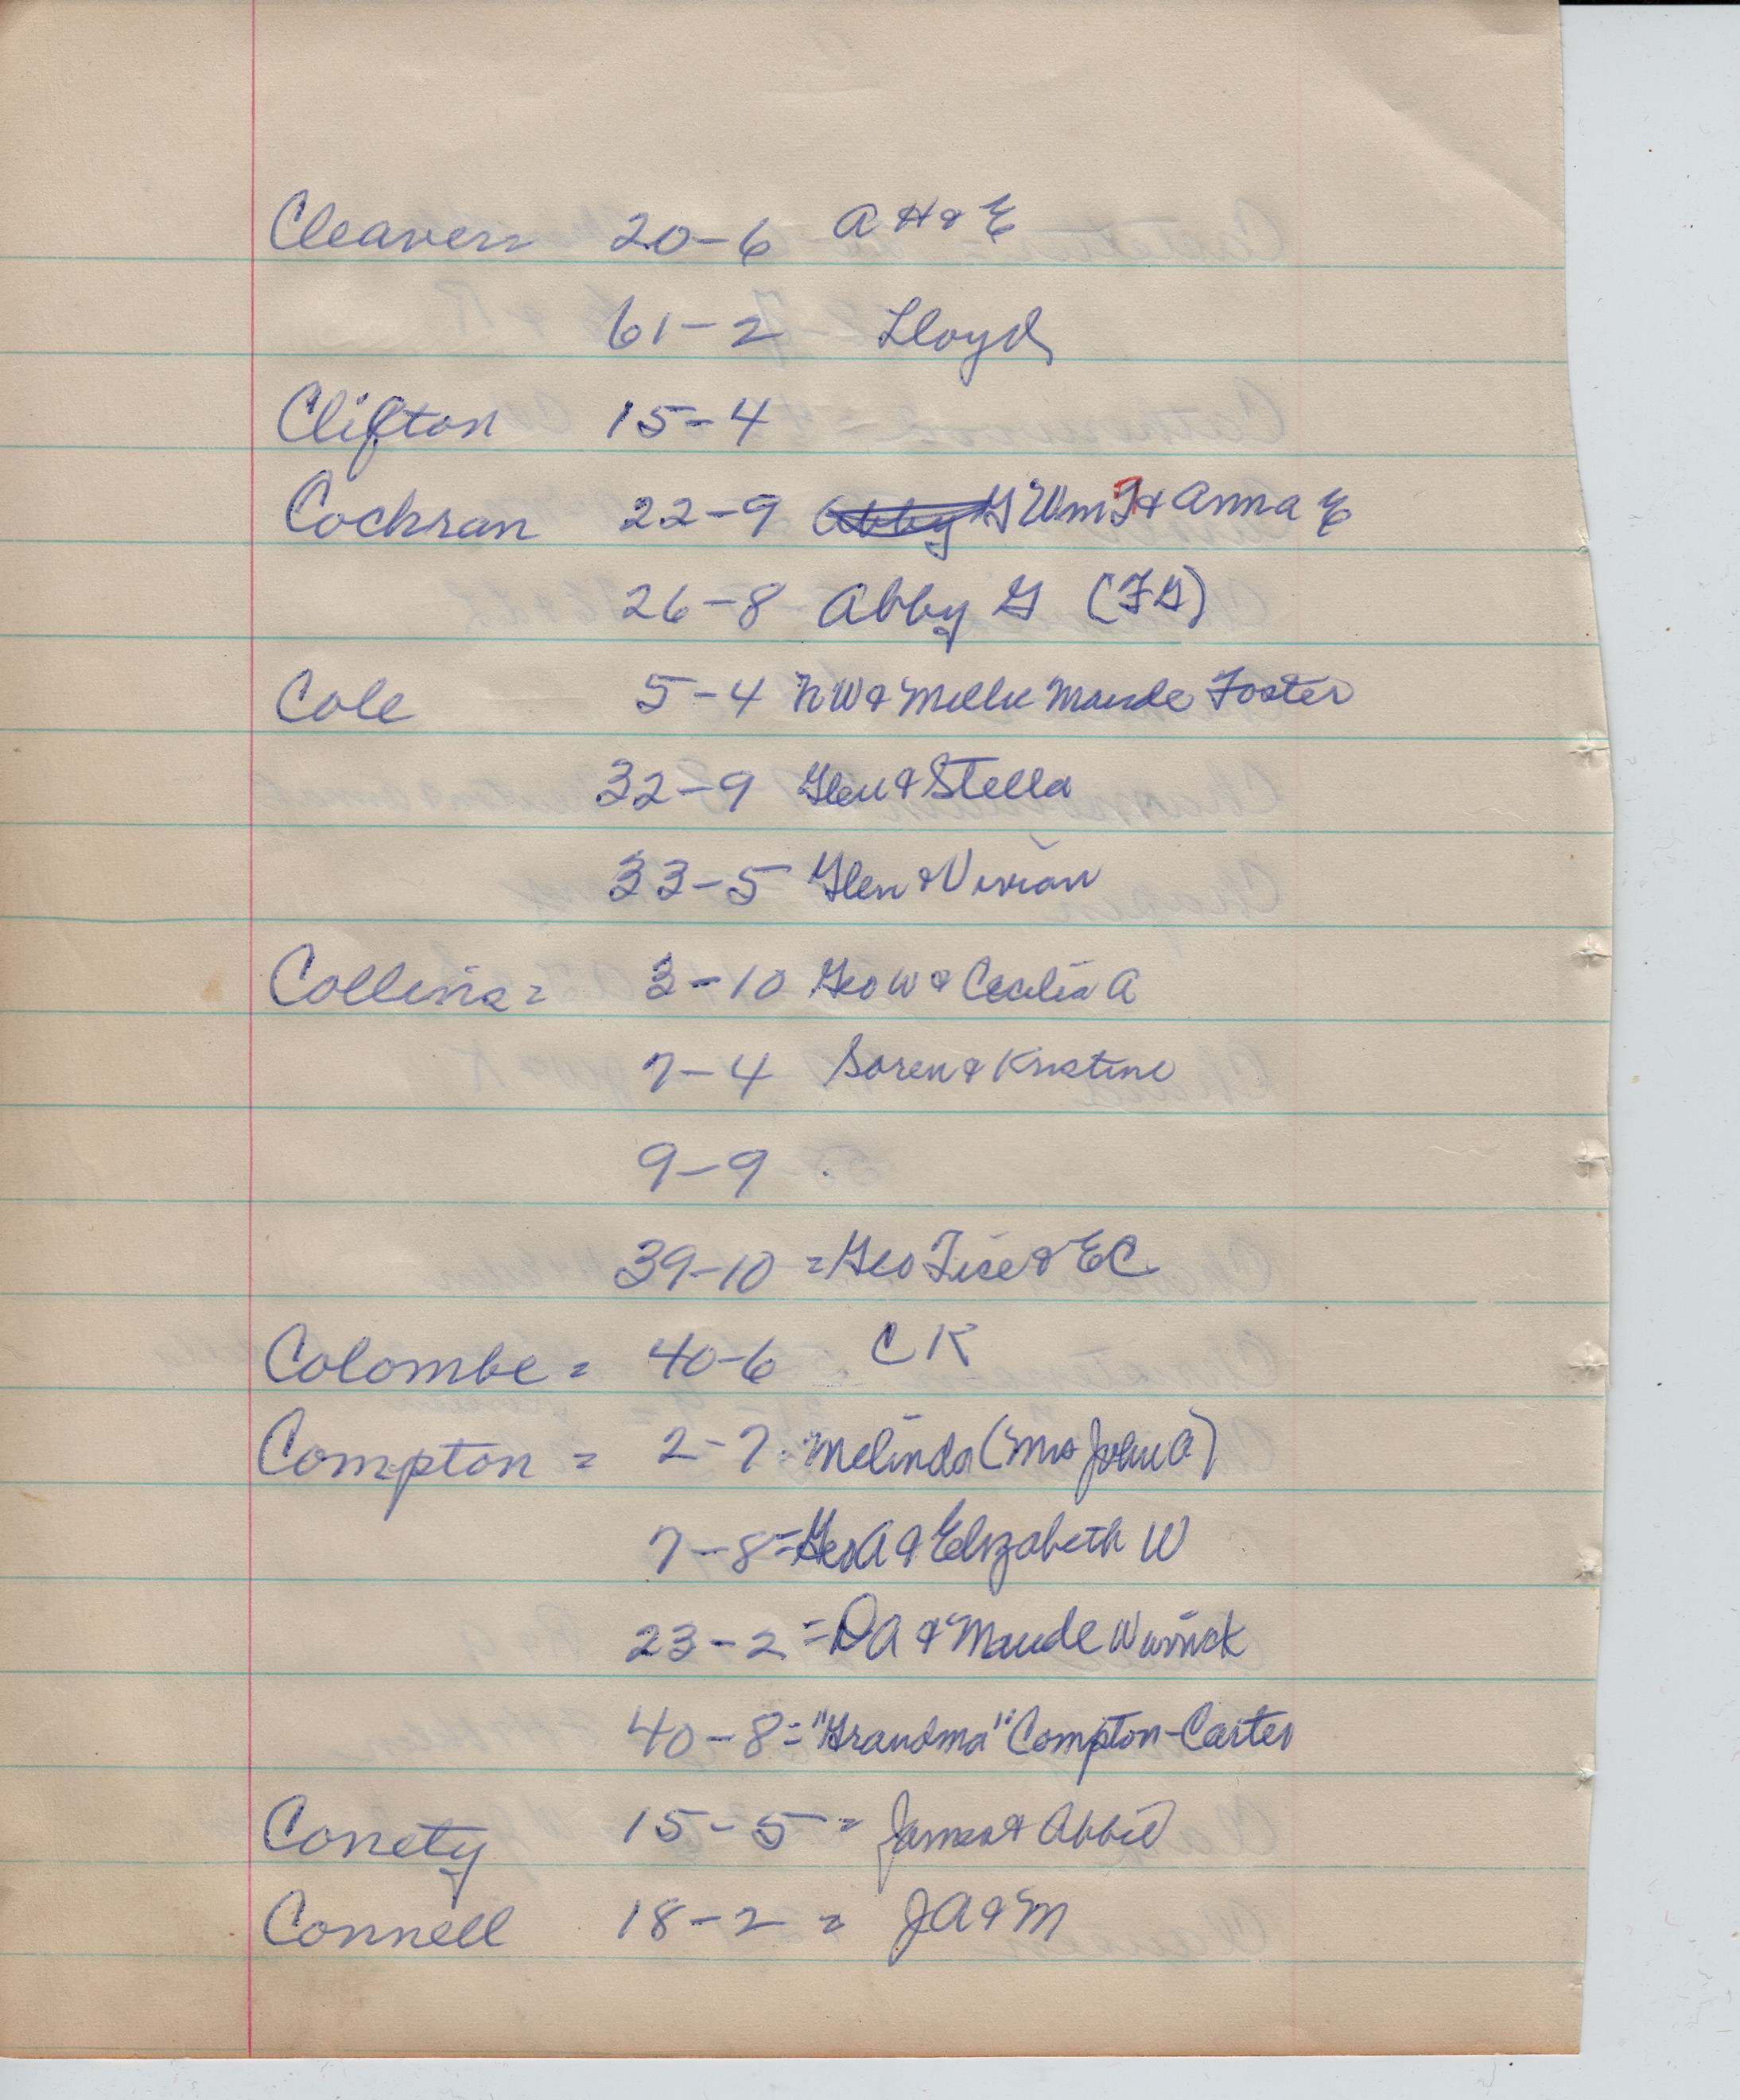 Cleaver= 20-6 A H & E
61-2 Lloyd
Clifton 15-4
Cochran 22-9 Abby G Wm F & Anna E
26-8 Abby G (FG)
Cole 5-4 N W & Mellie Maude Foster
32-9 Glen & Stella
33-5 Glen & Vivian
Collins= 3-10 Geo W & Cecilia A
7-4 Soren & Kristine
9-9
39-10 =Geo Tise & EC
Colombe = 40-6 C K
Compton = 2-7. Melinda (Mrs John A)
7-8=Geo A & Elizabeth W
23-2 =DA & Maude Warrick
40-8="Grandma" Compton-Carter
Conety 15-5 = James & Abbie
Connell 18-2 = JA & M